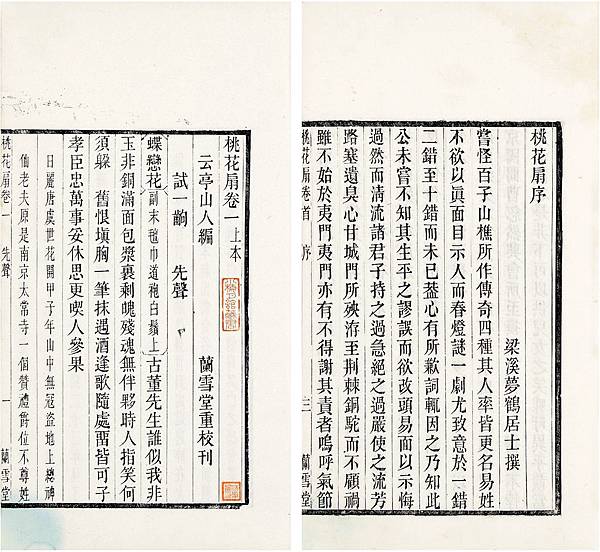 桃花扇序
梁溪夢鶴居士撰
嘗怪百子山樵所作傳奇四種其人率皆更名易姓
不欲以眞面目示人而春燈謎一劇尤致意於一錯
二錯至十錯而未已葢心有所歉詞輒因之乃知此
公未嘗不知其生平之謬誤而欲改頭易面以示悔
過然而清流諸君子持之過急絕之過嚴使之流芳
路塞遺臭心甘城門所殃洊至荆棘銅駝而不顧禍
雖不始於夷門夷門亦有不得謝其責者嗚呼氣節
桃花扇卷首 序 三 蘭雪堂
桃花扇卷一上本
云亭山人編 蘭雪堂重校刊
試一齣 先聲
蝶戀花 副末氊巾道袍白鬚上 古董先生誰似我非
玉非銅滿面包漿裹剩魄殘魂無伴夥時人指笑何
須躲 舊恨塡胸一筆抹遇酒逢歌隨處畱皆可子
孝臣忠萬事妥休思更喫人參果
日麗唐虞世花開甲子年山中無冦盜地上總神
仙老夫原是南京太常寺一個贊禮爵位不尊姓
桃花扇卷一 先聲 一 蘭雪堂